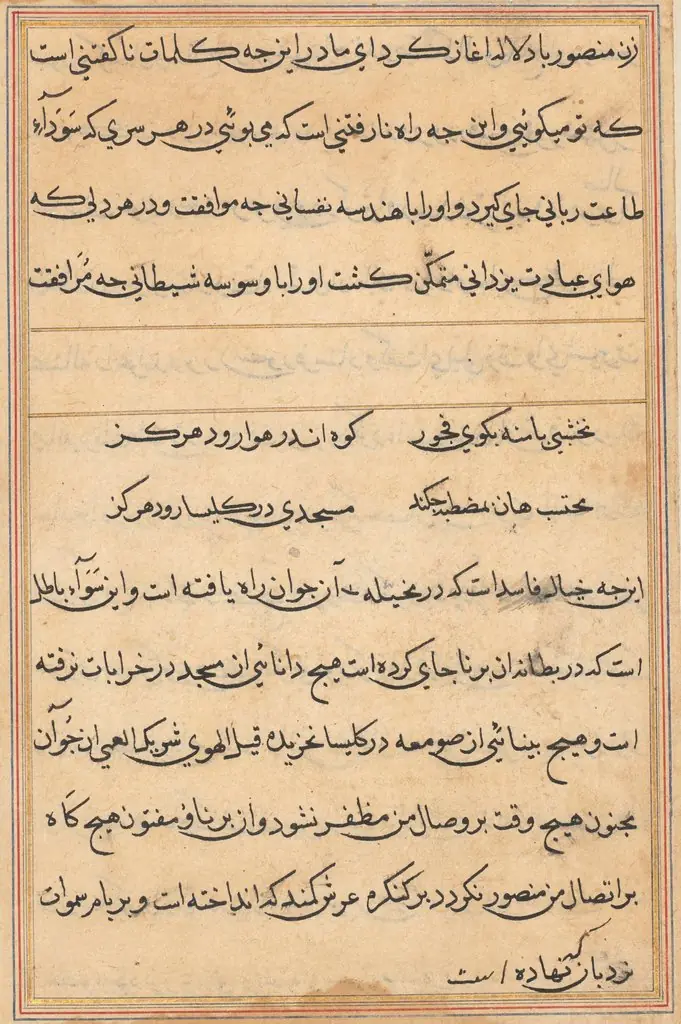 زن منصور با دلاله اغاز كرد اى مادر اين جه كلمات ناكفتنى است
كه تو ميكوئى و اين جه راه نارفتنى است كه مى بوئى در هر سرى كه سَوَدآءِ
طاعت ربانى جاى كيرد و اورا با هندسه نفسانى جه موافقت و در هر دلى كه
هواى عبادت يزدانى متمكّن كشت اورا با وسوسه شيطانى جه مُرَافقت
نخشبى با منه بكوى فجور كوه اندر هوا رود هركز
محتسب هان بمصطبه جكند مسجدى در كليسا رود هركز
اين جه خيال فاسد است كه در مخيله آن جوان راه يافته است و اين سَوَآء باطل
است كه در بطانه ان برنا جاى كرده است هيج دانائى از مسجد در خرابات نرفته
است و هيج بينائى از صومعه در كليسا نخزيده قيل الهوي شريك العمي ان جُوَآن
مجنون هيج وقت بر وصال من مظفر نشود و ان برناؤ مفتون هيج كَاه
بر اتصال من منصور نكردد بر كنكره عرش كمند كه انداخته است و بر بام سموات
نردبان كه نهاده است